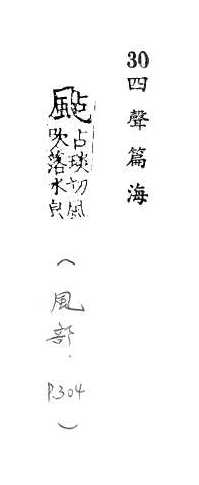 30
四聲篇海
颭
占琰切風
吹落水皃
(風部. P.304)